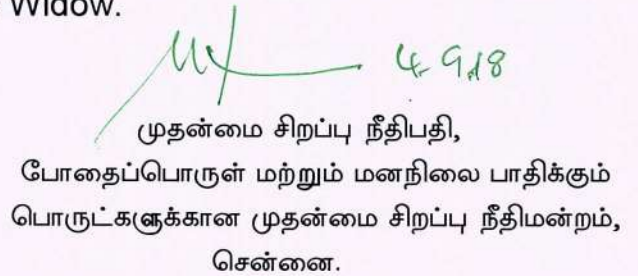 Widow.
4.9.18
முதன்மை சிறப்பு நீதிபதி,
போதைப்பொருள் மற்றும் மனநிலை பாதிக்கும்
பொருட்களுக்கான முதன்மை சிறப்பு நீதிமன்றம்,
சென்னை.